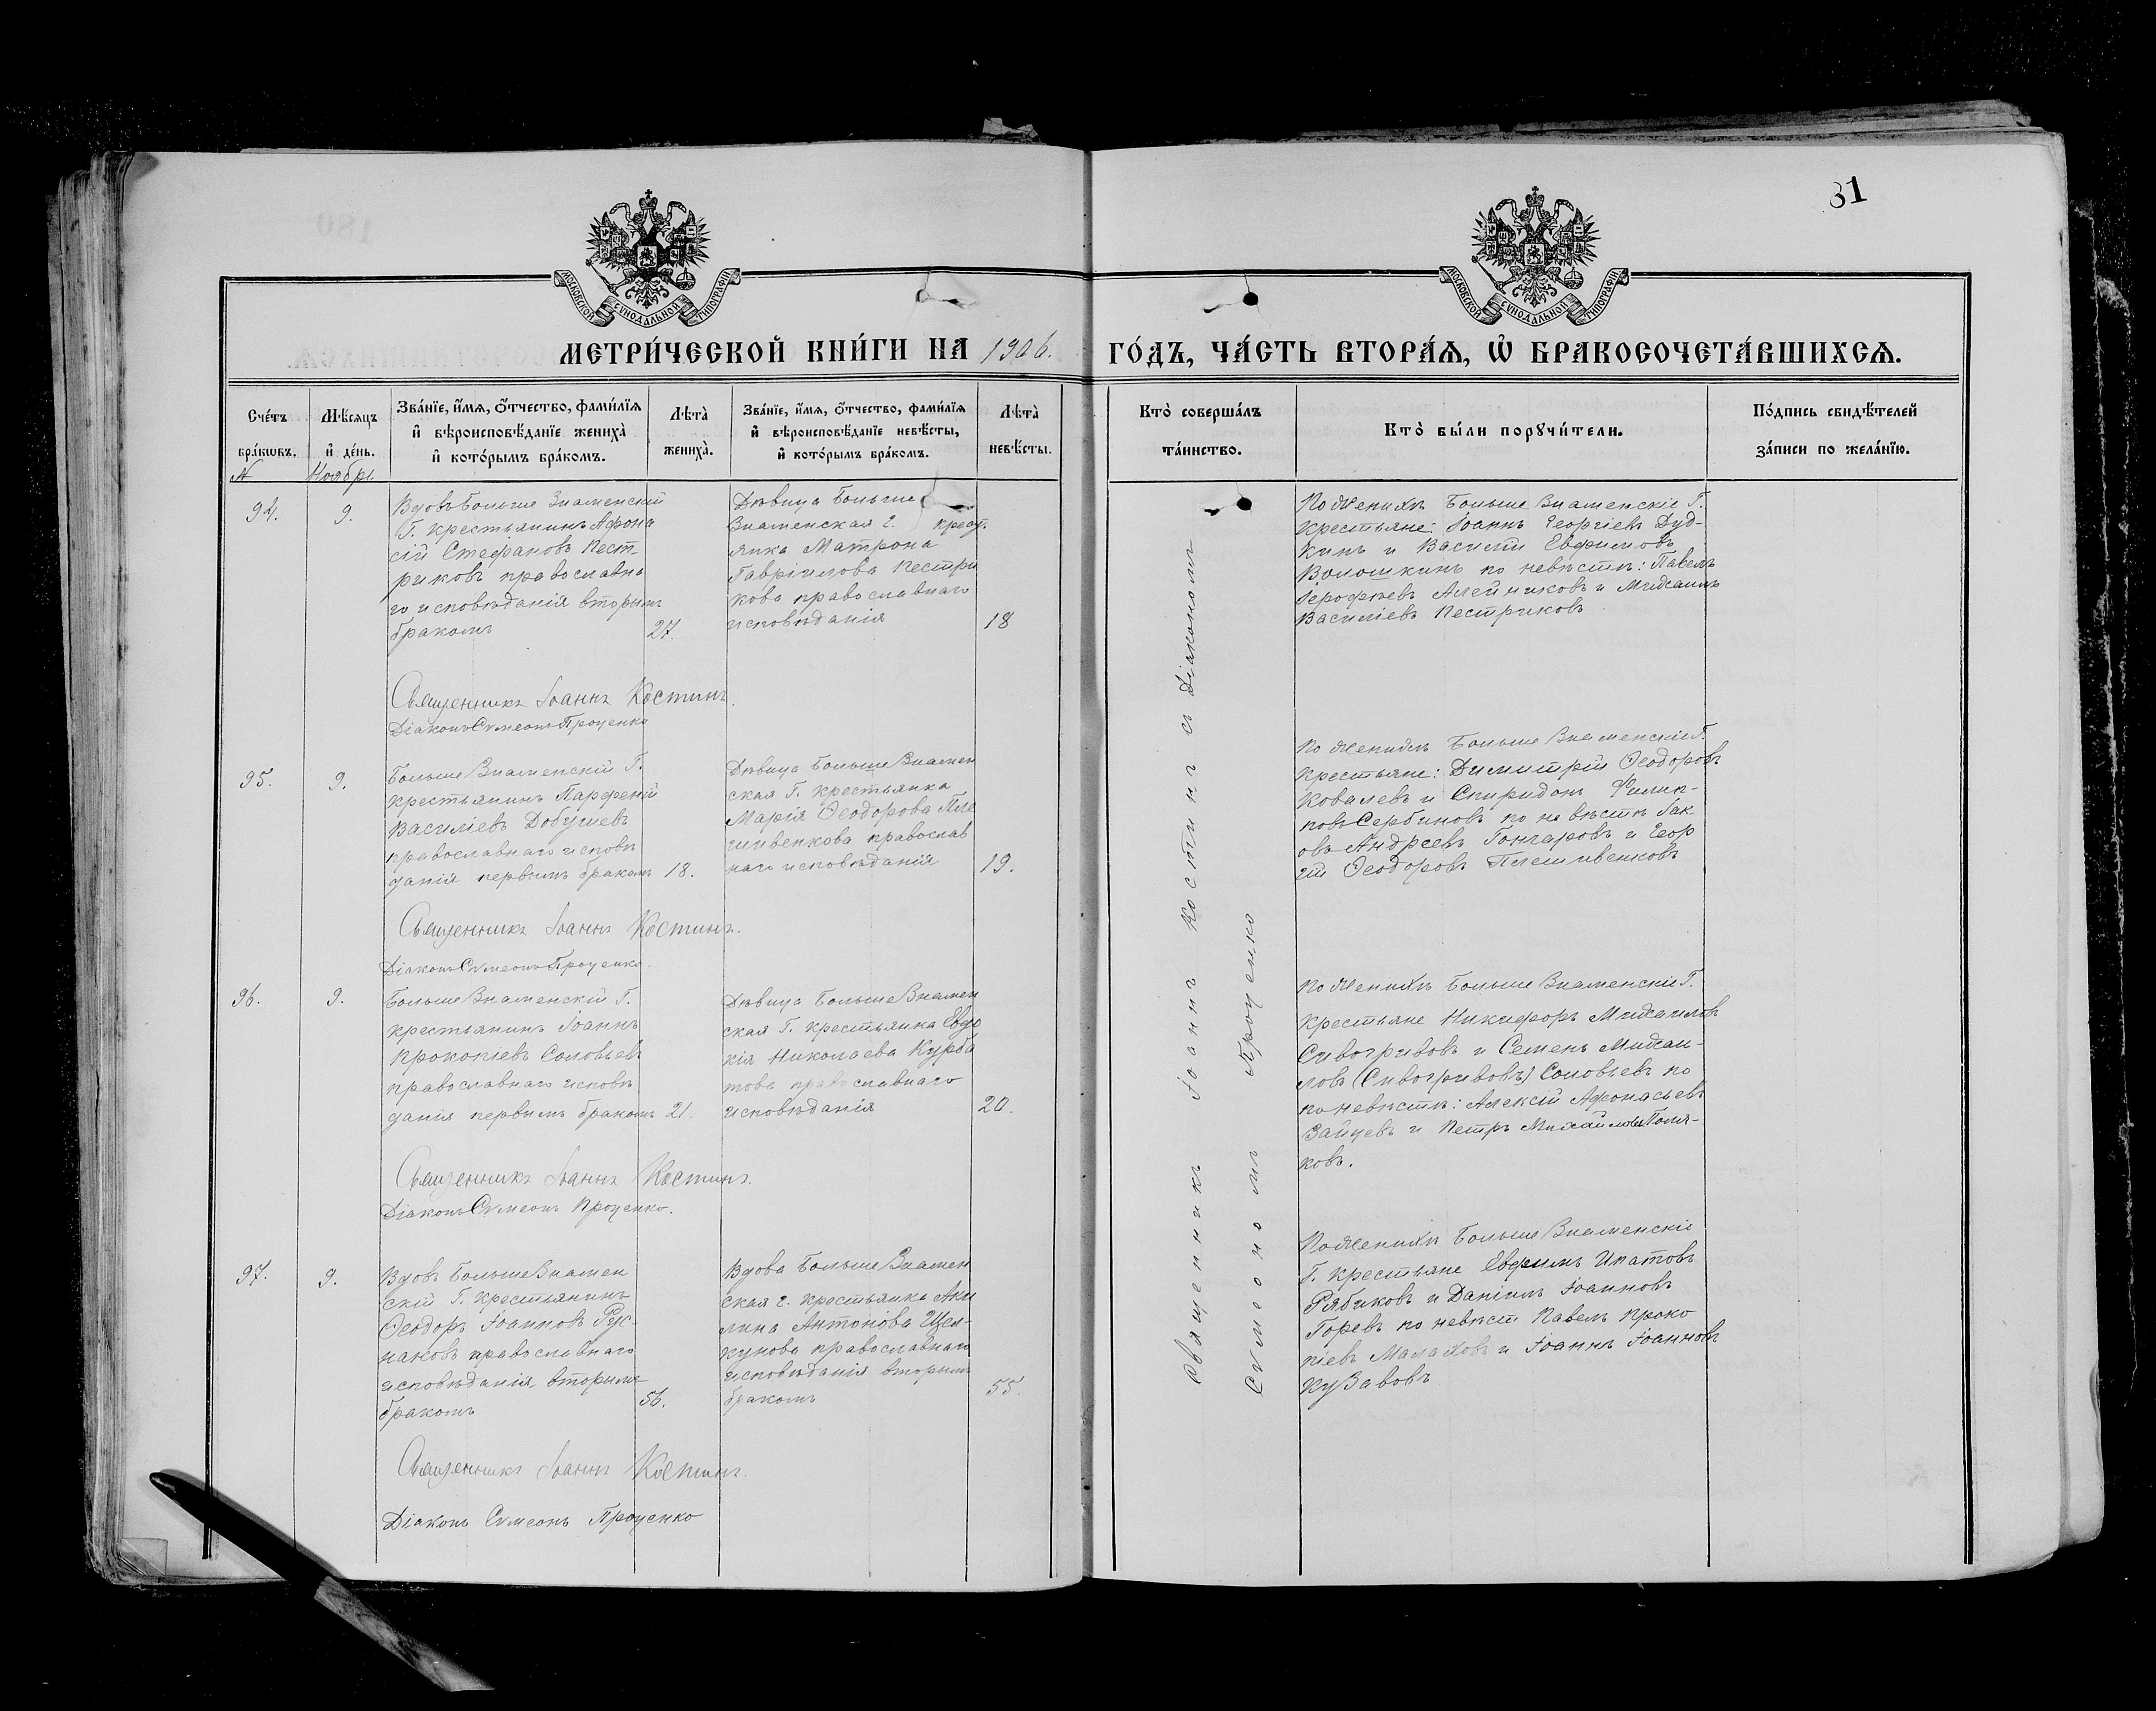 81
МОСКОВСКОЙ СѴНОДАЛЬНОЙ ТИПОГРАФІИ
МОСКОВСКОЙ СѴНОДАЛЬНОЙ ТИПОГРАФІИ
МЕТРИ́ЧЕСКОЙ КНИ́ГИ НА 1906. ГО́ДЪ, ЧА́СТЬ ВТОРА́Я, Ѡ҆ БРАКОСОЧЕТА́ВШИХСѦ.
Сче́тъ бра́кѡвъ.
Мѣ́сяцъ и҆ де́нь.
Зва́нїе, и҆́мя, ѻ҆́тчество, фами́лїя
и҆ вѣроисповѣ́данїе жениха̀
и҆ кото́рымъ бра́комъ.
Лѣта̀ жениха̀.
Зва́нїе, и҆́мя, ѻ҆́тчество, фами́лїя
и҆ вѣроисповѣ́данїе невѣ́сты,
и҆ кото́рымъ бра́комъ.
Лѣта̀ невѣ́сты.
Кто̀ соверша́лъ
та́инство.
Кто̀ бы́ли порꙋчи́тели.
По́дпись свидѣ́телей
за́писи по жела́нїю.
№ Ноябрь
94. 9.
Вдовъ Больше Знаменскій
Г. крестьянинъ Афона
сій Стефановъ Пест-
риковъ православна
го исповѣданія вторымъ
бракомъ
27.
Дѣвица Больше
Знаменская г. крест.
янка Матрона
Гавріилова Пестри
кова православнаго
исповѣданія
18
По женихѣ Больше Знаменскіе Г.
крестьяне: Іоаннъ Георгіевъ Дуд-
кинъ и Василій Евфимовъ
Волошкинъ по невѣстѣ: Павелъ
Іерофѣевъ Алейниковъ и Михаилъ
Василіевъ Пестриковъ
Священникъ Іоаннъ Костинъ.
Діаконъ Сѵмеонъ Проценко
95. 9.
Больше Знаменскій Г.
крестьянинъ Парфеній
Василіевъ Добушевъ
православнаго исповѣ
данія первымъ бракомъ
18.
Дѣвица Больше Знамен
ская Г. крестьянка
Марія Ѳеодорова Пле
шивенкова православ
наго исповѣданія
19.
По женихѣ Больше Знаменскіе Г.
крестьяне: Димитрій Ѳеодоровъ
Ковалевъ и Спиридонъ Филип-
повъ Сербиновъ по невѣстѣ Іак-
овъ Андреевъ Гончаровъ и Геор
гій Ѳеодоровъ Плешивенковъ
Священникъ Іоаннъ Костинъ.
Діаконъ Сѵмеонъ Проценко.
96. 9.
Больше Знаменскій Г.
крестьянинъ Іоаннъ
Прокопіевъ Соловьевъ
православнаго исповѣ
данія первымъ бракомъ
21.
Дѣвица Больше Знамен
ская Г. крестьянка Евдо
кія Николаева Курба
това православнаго
исповѣданія
20.
По женихѣ Больше Знаменскіе Г.
крестьяне Никифоръ Михаиловъ
Сивогривовъ и Семенъ Михаи-
ловъ (Сивогривовъ) Соловьевъ по
по невѣстѣ: Алексій Афонасьевъ
Зайцевъ и Петръ Михайловъ Поля-
ковъ.
Священникъ Іоаннъ Костинъ.
Діаконъ Сѵмеонъ Проценко.
97. 9.
Вдовъ Больше Знамен
скій Г. крестьянинъ
Ѳеодоръ Іоанновъ Рус-
наковъ православнаго
исповѣданія вторымъ
бракомъ
56.
Вдова Больше Знамен
ская г. крестьянка Аки
лина Антонова Щел-
кунова православнаго
исповѣданія вторымъ
бракомъ
55.
По женихѣ Больше Знаменскіе
Г. крестьяне Евфимъ Ипатовъ
Рябиковъ и Даніилъ Іоанновъ
Горевъ по невѣст Павелъ Проко
піевъ Малаховъ и Іоаннъ Іоанновъ
Кузавовъ
Священникъ Іоаннъ Костинъ.
Діаконъ Сѵмеонъ Проценко
Священникъ Іоаннъ Костинъ съ Діакономъ
Сѵмеономъ Проценко